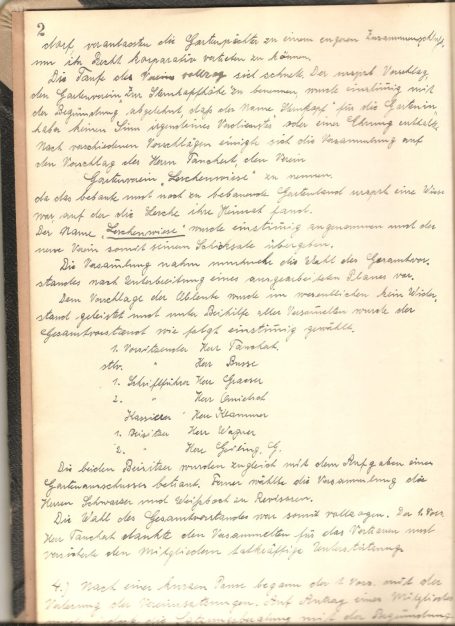 2
darf, veranlassten die Gartenpächter zu einem engeren Zusammenschluß,
um ihr Recht korporativ vertreten zu können.
Die Taufe des Vereins vollzog sich schnell. Der urspr. Vorschlag,
den Gartenverein "Zur Sternkopfhöhe" zu benennen, wurde einstimmig mit
der Begründung abgelehnt, daß der Name "Sternkopf" für die Gartenin-
haber keinen Sinn irgendeines Verdienstes oder einer Ehrung enthält.
Nach verschiedenen Vorschlägen einigte sich die Versammlung auf
den Vorschlag des Herrn Tanchat, den Verein
Gartenverein "Lerchenwiese" zu nennen.
da das bebaute und noch zu bebauende Gartenland urspr. eine Wiese
war, auf der die Lerche ihre Heimat fand.
Der Name "Lerchenwiese" wurde einstimmig angenommen und der
neue Verein somit seinem Schicksale übergeben.
Die Versammlung nahm nunmehr die Wahl des Gesamtvor-
standes nach Unterbreitung eines ausgearbeiteten Planes vor.
Dem Vorschlage der Obleute wurde im wesentlichen kein Wider-
stand geleistet und unter Beihilfe aller Versammelten wurde der
Gesamtvorstand wie folgt einstimmig gewählt.
1. Vorsitzender Herr Tanchat
stv. " Herr Busse
1. Schriftführer Herr Graeser
2. " Herr
Kassierer Herr Klammer
1. Beisitzer Herr Wagner
2. " Herr G.
Die beiden Beisitzer wurden zugleich mit den Aufgaben eines
Gartenausschusses betraut. Ferner wählte die Versammlung die
Herren Schwarzer und Weißbach zu Revisoren.
Die Wahl des Gesamtvorstandes war somit vollzogen. Der 1. Vors.
Herr Tanchat dankte den Versammelten für das Vertrauen und
versicherte den Mitgliedern tatkräftige Unterstützung.
4.) Nach einer kurzen Pause begann der 1. Vors. mit der
Verlesung der Vereinssatzungen. Auf Antrag eines Mitgliedes
wurde die Satzungsberatung mit der Begründung